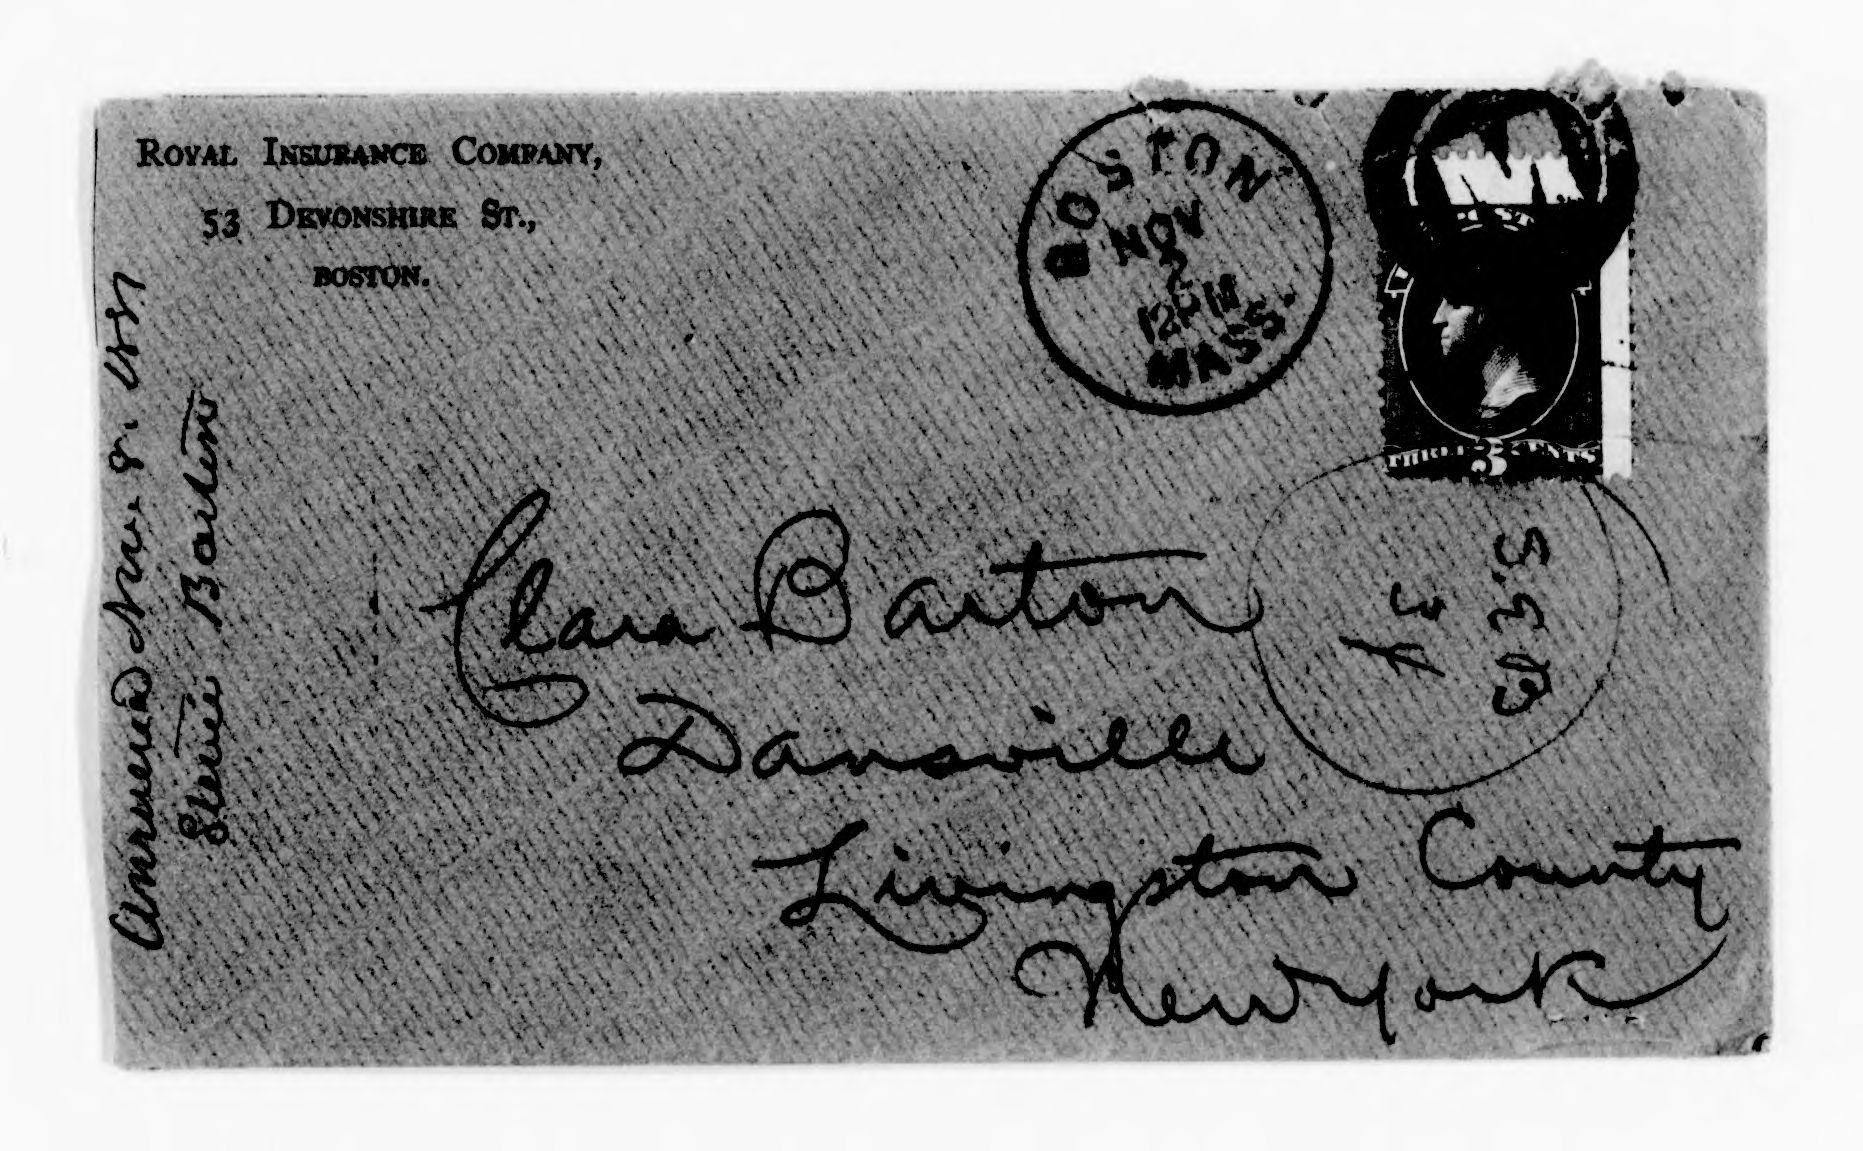 ROYAL INSURANCE COMPANY,
53 DEVONSHIRE ST.,
BOSTON.
BOSTON
NOV
2
12PM
MASS.
THREE 3 CENTS
Clara Barton
Dansville
Livingston County
New York
Answered Nov. 8.
Barton